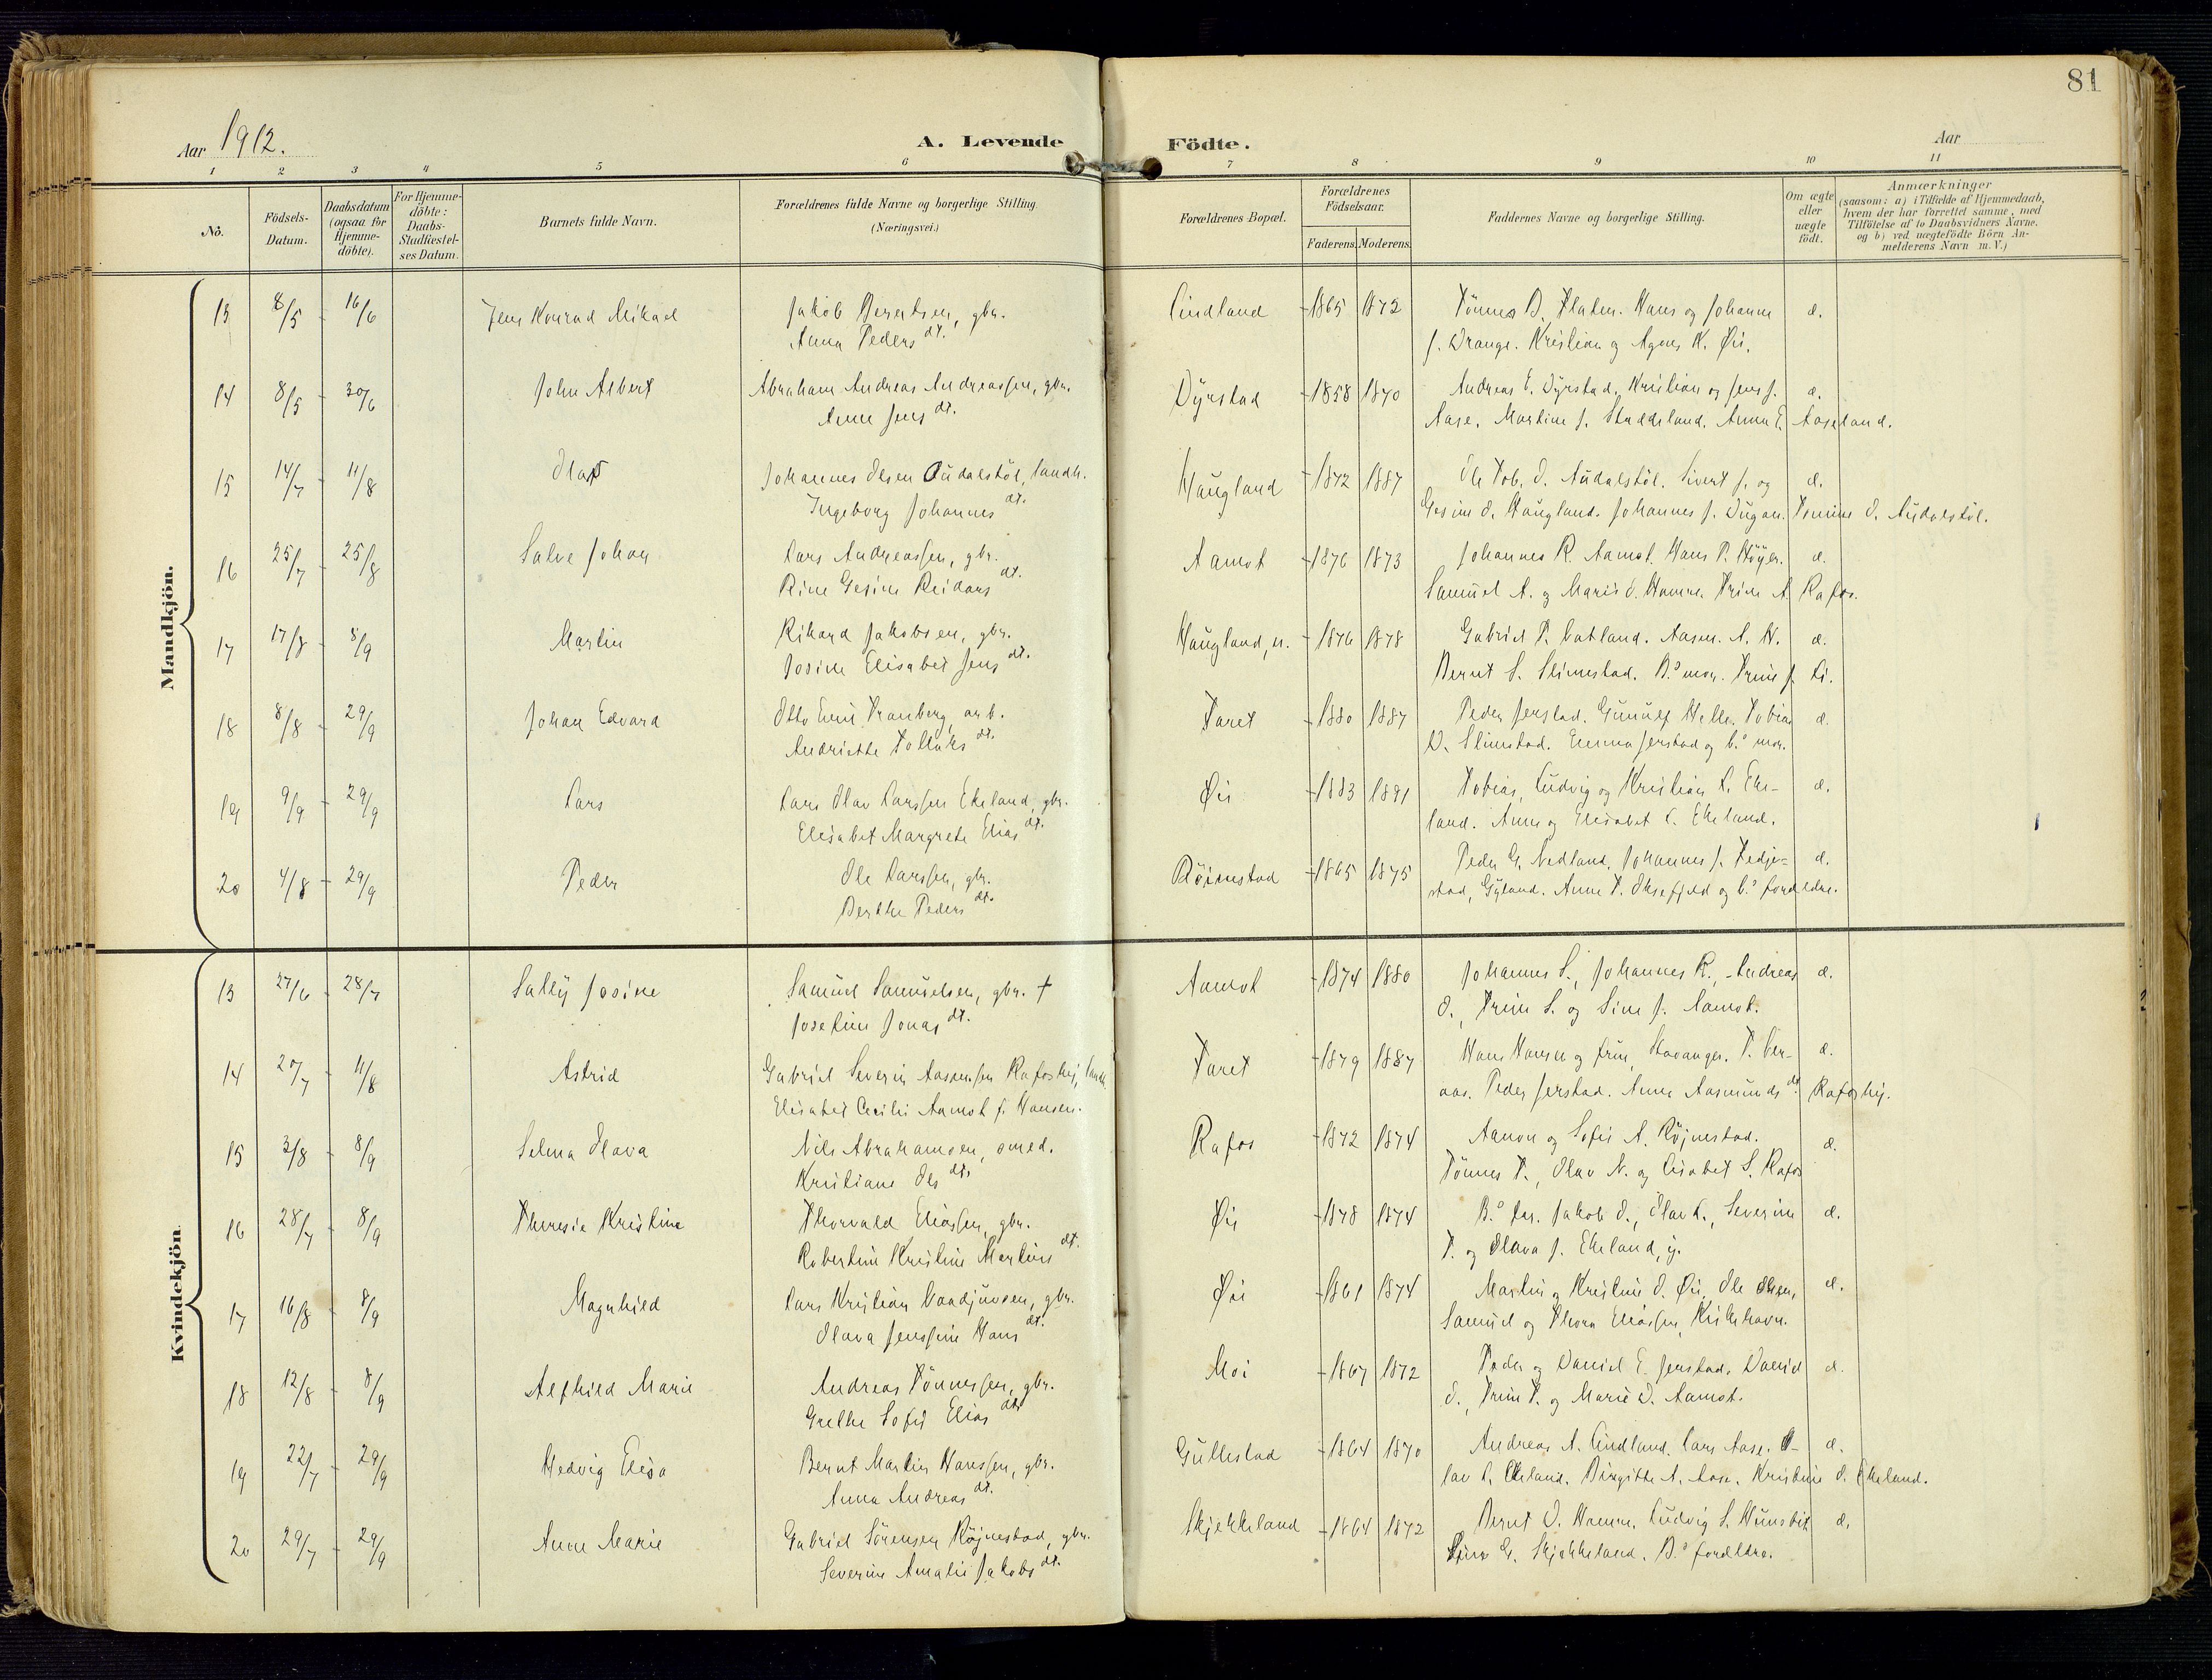 81
Aar 1912.
A. Levende Födte.
Aar
1 2 3 4 5 6 7 8 9 10 11
No. Födsels-Datum. Daabsdatum (ogsaa for Hjemme-döbte). For Hjemme-döbte: Daabs-Stadfæstel-ses Datum. Barnets fulde Navn. Forældrenes fulde Navne og borgerlige Stilling. (Næringsvei.) Forældrenes Bopæl. Forældrenes Födselsaar. Faderens. Moderens. Faddernes Navne og borgerlige Stilling. Om ægte eller uægte födt. Anmærkninger (saasom: a) i Tilfælde af Hjemmedaab, hvem der har forrettet samme, med Tilföielse af to Daabsvidners Navne, og b) ved uægtefödte Börn An-melderens Navn m. V.)
Mandkjön.
13 8/5 - 16/6 Jens Konrad Mikael Jakob Berntsen, gbr. Lindland - 1865 1872 Tönnes B. Flaten. Hans og Johanne æ.
Anna Peders dt. J. Drange. Kristian og Agnes K. Øie.
14 8/5 - 30/6 John Albert Abraham Andreas Andreassen, gbr. Dyrstad - 1858 1870 Andreas E. Dyrstad, Kristian og Jens J. æ.
Anne Jens dt. Aase. Martine J. Staddeland. Anna E. Aaseland.
15 14/7 - 11/8 Olaf Johannes Olsen Audalstöl, landh. Haugland - 1872 1887 Ole Tob. O. Audalstöl. Sivert J. og æ.
Ingeborg Johannes dt. Gesine O. Haugland. Johannes J. Dugan. Tomine O. Audalstöl.
16 25/7 - 25/8 Salve Johan Lars Andreassen, gbr. Aamot - 1876 1873 Johannes R. Aamot. Hans P. Höyer. æ.
Rine Gesine Reidars dt. Samuel A. og Marie O. Hamre. Trine A. Rafos.
17 17/8 - 8/9 Martin Rikard Jakobsen, gbr. Haugland, n. - 1876 1878 Gabriel P. Vatland. Aasm. A. N. æ.
Josine Elisabet Jens dt. Bernt S. Slimestad. B.s mor. Trine J. Li.
18 8/8 - 29/9 Johan Edvard Otto Emil Tranberg, arb. Faret - 1880 1887 Peder Jerstad. Gunulf Helle. Tobias æ.
Andriette Tollaks dt. D. Slimstad. Emma Jerstad og b.s mor.
19 9/9 - 29/9 Lars Lars Olav Larssen Ekeland, gbr. Øie - 1883 1891 Tobias, Ludvig og Kristian L. Eke- æ.
Elisabet Margrete Elias dt. land. Anne og Elisabet L. Ekeland.
20 4/8 - 29/9 Peder Ole Larssen, gbr. Röinestad - 1865 1875 Peder G. Nedland. Johannes J. Tedje- æ.
Berthe Peders dt. stad, Gyland. Anne T. Oksefjeld og b.s foreldre.
Kvindekjön
13 27/6 - 28/7 Sally Josine Samuel Samuelsen, gbr. † Aamot - 1874 1880 Johannes S., Johannes R., Andreas æ.
Josefine Jonas dt. O., Trine S. og Sine J. Aamot.
14 20/7 - 11/8 Astrid Gabriel Severin Aasmssen Rafoshei, landh. Faret - 1879 1887 Hans Hansen og frue, Stavanger. T. Ver- æ.
Elisabet Cecilie Aamot f. Hansen. aas. Peder Jerstad. Anne Aasmunds dt. Rafoshei.
15 3/8 - 8/9 Selma Olava Nils Abrahamsen, smed. Rafos - 1872 1874 Aanon og Sofie A. Röjnestad. æ.
Kristiane Ols dt. Tönnes T., Olav N. og Lisabet S. Rafos
16 28/7 - 8/9 Theresie Kristine Thorvald Eliassen, gbr. Øie - 1878 1874 B.s far. Jakob O., Olav L., Severine æ.
Robertine Kristine Martins dt. T. og Olava J. Ekeland, y.
17 16/8 - 8/9 Magnhild Lars Kristian Vaadjuvsen, gbr. Øie - 1861 1874 Martin og Kristine O. Øie, Ole Olsen, æ.
Olava Jenssine Hans dt. Samuel og Thora Eliassen, Kirkehavn.
18 12/8 - 8/9 Alfhild Marie Andreas Tönnessen, gbr. Moi - 1867 1872 Peder og Daniel E. Jerstad. David æ.
Grethe Sofie Elias dt. O., Trine T. og Marie D. Aamot.
19 22/7 - 29/9 Hedvig Elisa Bernt Martin Hanssen, gbr. Gullestad - 1864 1870 Andreas A. Lindland. Lars Aase. O- æ.
Anna Andreas dt. lav L. Ekeland. Birgitte A. Aase. Kristine O. Ekeland.
20 29/7 - 29/9 Anne Marie Gabriel Sörensen Röjnestad, gbr. Skjekkeland - 1864 1872 Bernt D. Hamre. Ludvig S. Hunsbit. æ.
Severine Amalie Jakobs dt. G. Skjekkeland. B.s foreldre.